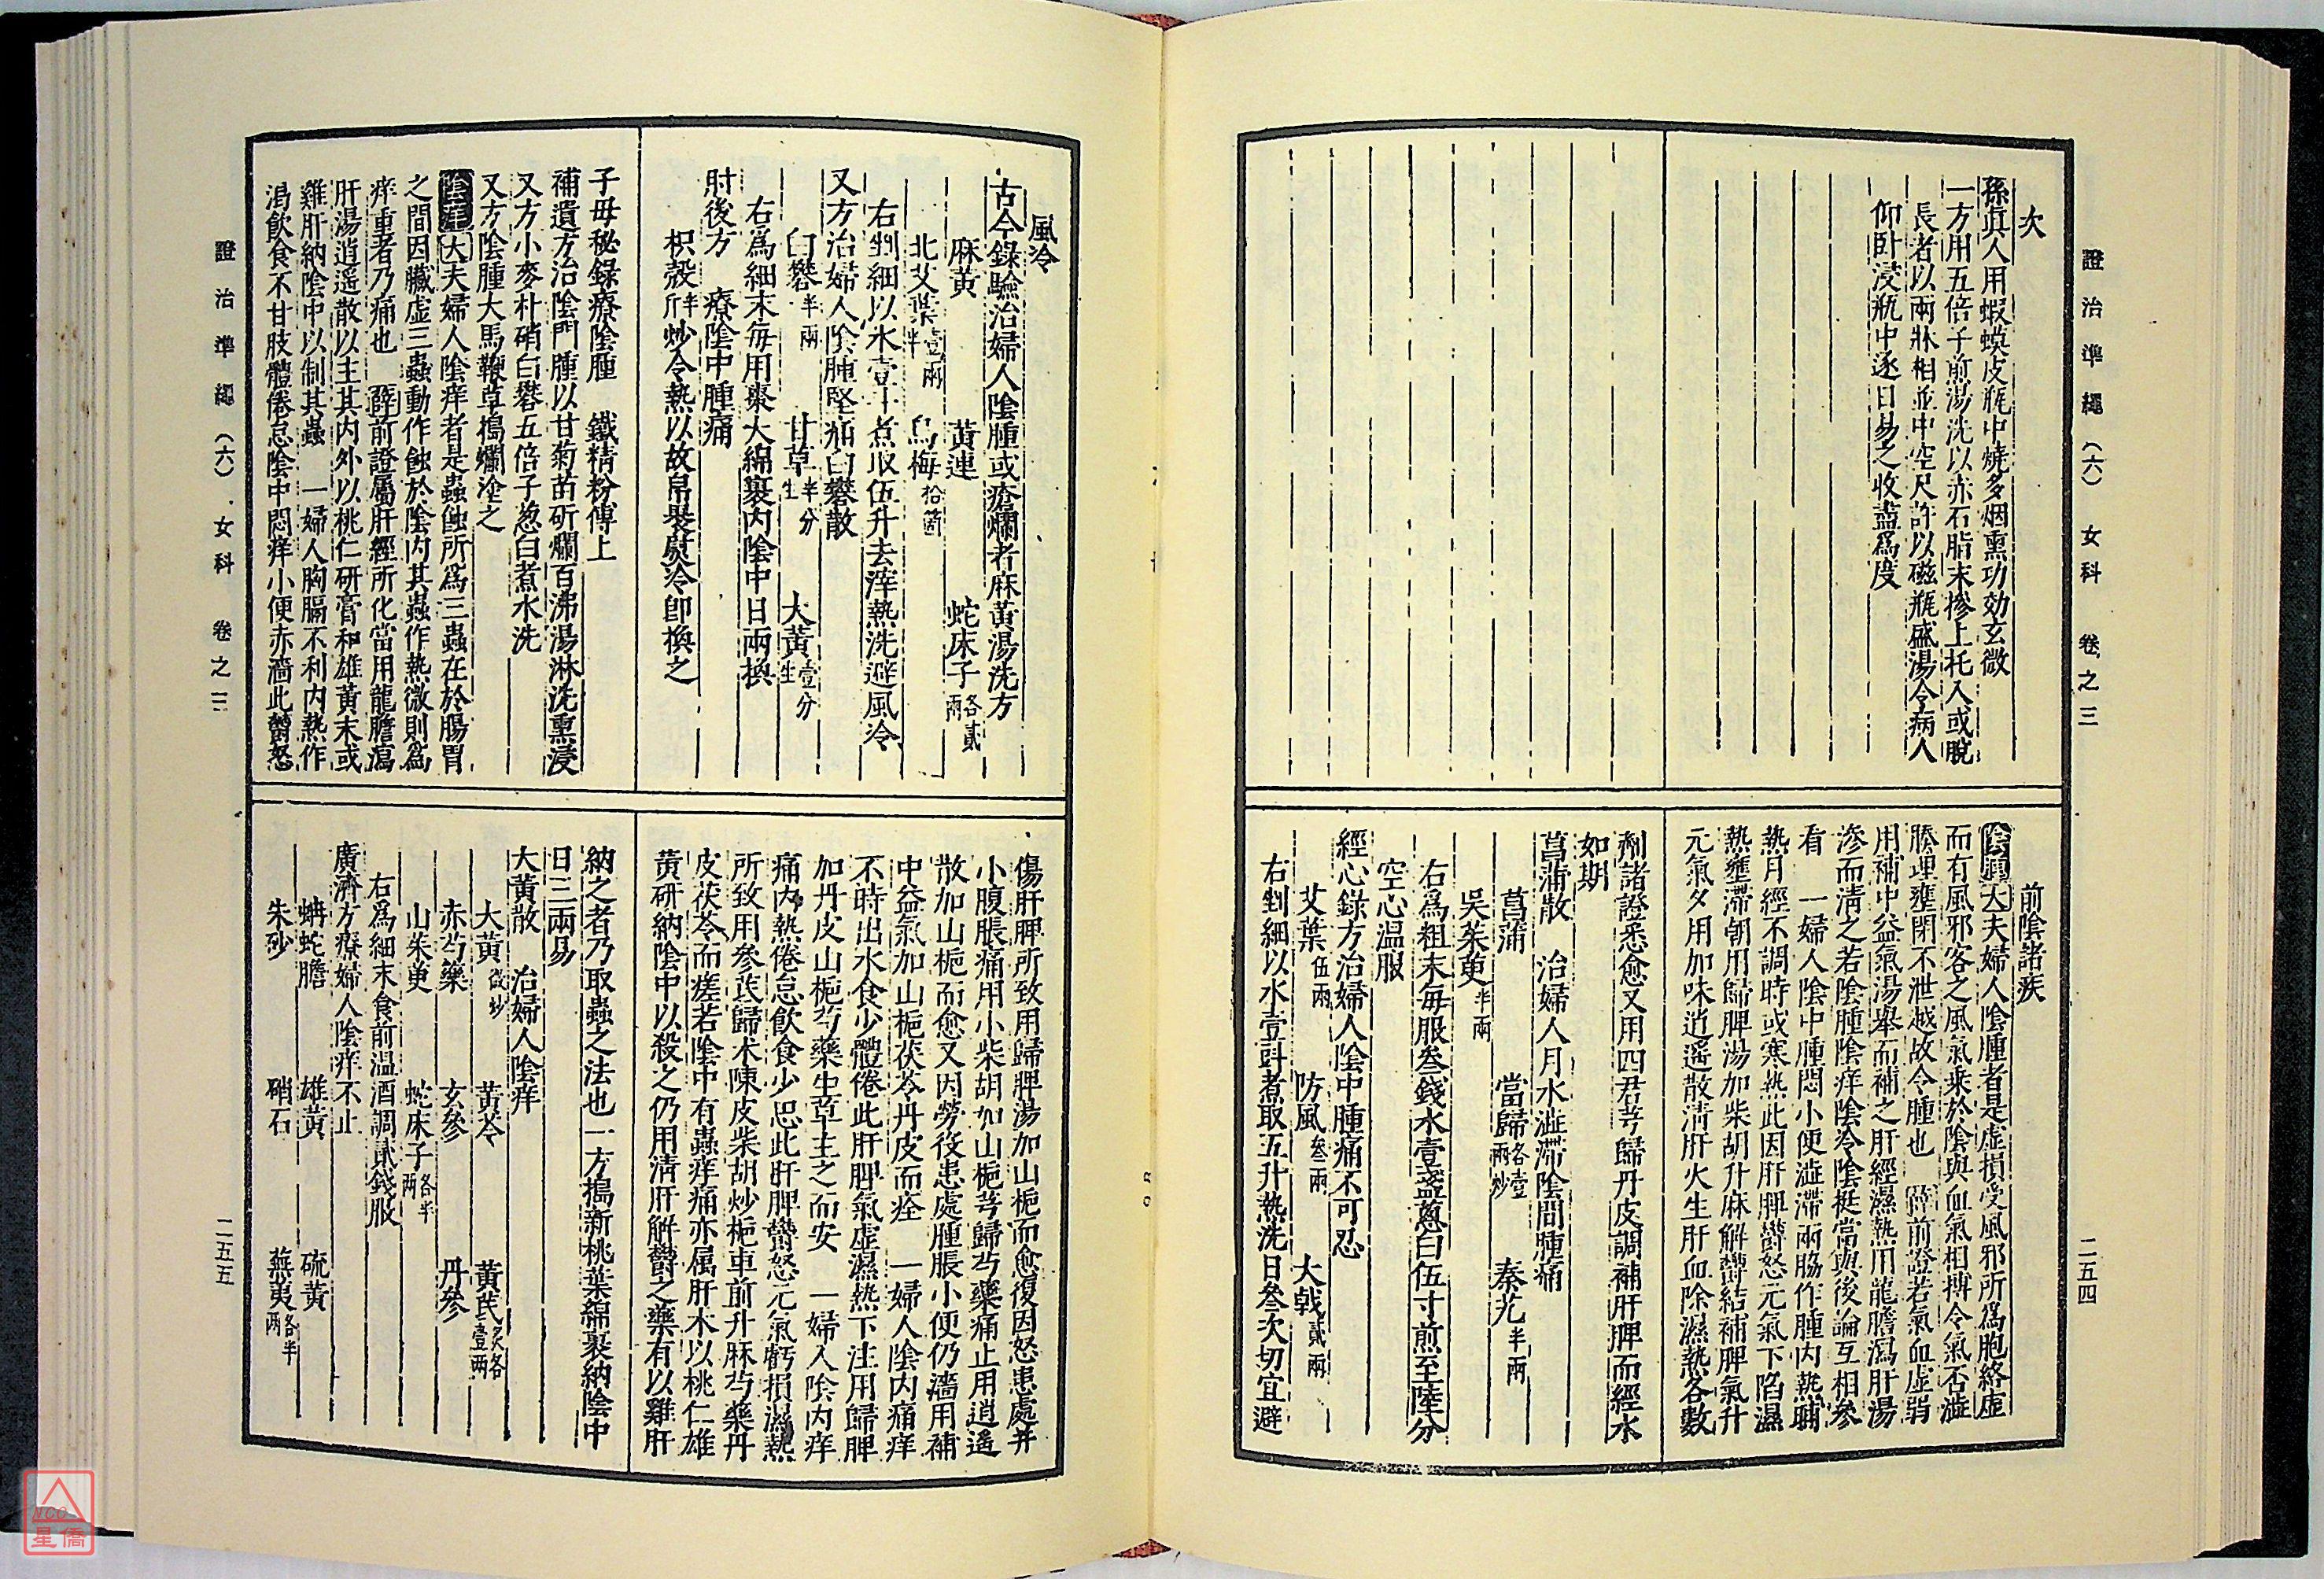 證治準繩（六）　女科　卷之三
二五四
次
孫眞人用蝦蟆皮瓶中燒多烟熏功効玄微
一方用五倍子煎湯洗以赤石脂末摻上托入或脫
長者以兩牀相並中空尺許以磁瓶盛湯令病人
仰臥浸瓶中逐日易之收盡爲度
前陰諸疾
陰腫大夫婦人陰腫者是虛損受風邪所爲胞絡虛
而有風邪客之風氣乗於陰與血氣相搏令氣否澁
腠理壅閉不泄越故令腫也　薛前證若氣血虛弱
用補中益氣湯舉而補之肝經濕熱用龍膽瀉肝湯
滲而淸之若陰腫陰痒陰冷陰挺當與後論互相參
看　一婦人陰中腫悶小便澁滯兩脇作腫內熱晡
熱月經不調時或寒熱此因肝脾鬱怒元氣下陷濕
熱壅滯朝用歸脾湯加柴胡升麻解鬱結補脾氣升
元氣夕用加味逍遙散淸肝火生肝血除濕熱各數
劑諸證悉愈又用四君芎歸丹皮調補肝脾而經水
如期
菖蒲散　治婦人月水澁滯陰間腫痛
菖蒲　當歸各壹兩炒　秦艽半兩
吳茱萸半兩
右爲粗末毎服叁錢水壹盞蔥白伍寸煎至陸分
空心温服
經心錄方治婦人陰中腫痛不可忍
艾葉伍兩　防風叁兩　大戟貳兩
右剉細以水壹㪷煮取五升熱洗日叁次切宜避
風冷
古今錄驗治婦人陰腫或瘡爛者麻黃湯洗方
麻黃　黃連　蛇床子各貳兩
北艾葉壹兩半　烏梅拾箇
右剉細以水壹㪷煮取伍升去滓熱洗避風冷
又方治婦人陰腫堅痛白礬散
白礬半兩　甘草半分生　大黃壹分生
右爲細末毎用棗大綿裹內陰中日兩換
肘後方　療陰中腫痛
枳殼半斤炒令熱以故帛裹熨冷卽換之
子母秘錄療陰腫　鐵精粉傅上
補遺方治陰門腫以甘菊苗研爛百沸湯淋洗熏浸
又方小麥朴硝白礬五倍子葱白煮水洗
又方陰腫大馬鞭草搗爛塗之
陰痒大夫婦人陰痒者是蟲蝕所爲三蟲在於腸胃
之間因臟虛三蟲動作蝕於陰內其蟲作熱微則爲
痒重者乃痛也　薛前證屬肝經所化當用龍膽瀉
肝湯逍遙散以主其內外以桃仁研膏和雄黃末或
雞肝納陰中以制其蟲　一婦人胸膈不利內熱作
渴飮食不甘肢體倦怠陰中悶痒小便赤濇此鬱怒
傷肝脾所致用歸脾湯加山梔而愈復因怒患處并
小腹脹痛用小柴胡加山梔芎歸芍藥痛止用逍遙
散加山梔而愈又因勞役患處腫脹小便仍濇用補
中益氣加山梔茯苓丹皮而痊　一婦人陰內痛痒
不時出水食少體倦此肝脾氣虛濕熱下注用歸脾
加丹皮山梔芍藥生草主之而安　一婦人陰內痒
痛內熱倦怠飮食少思此肝脾鬱怒元氣虧損濕熱
所致用參芪歸朮陳皮柴胡炒梔車前升麻芍藥丹
皮茯苓而瘥若陰中有蟲痒痛亦屬肝木以桃仁雄
黃研納陰中以殺之仍用淸肝解鬱之藥有以雞肝
納之者乃取蟲之法也一方搗新桃葉綿裹納陰中
日三兩易
大黃散　治婦人陰痒
大黃微炒　黃芩　黃芪炙各壹兩
赤芍藥　玄參　丹參
山茱萸　蛇床子各半兩
右爲細末食前温酒調貳錢服
廣濟方療婦人陰痒不止
蚺蛇膽　雄黃　硫黃
朱砂　硝石　蕪荑各半兩
證治準繩（六）．女科　卷之三
二五五
NCC
星僑